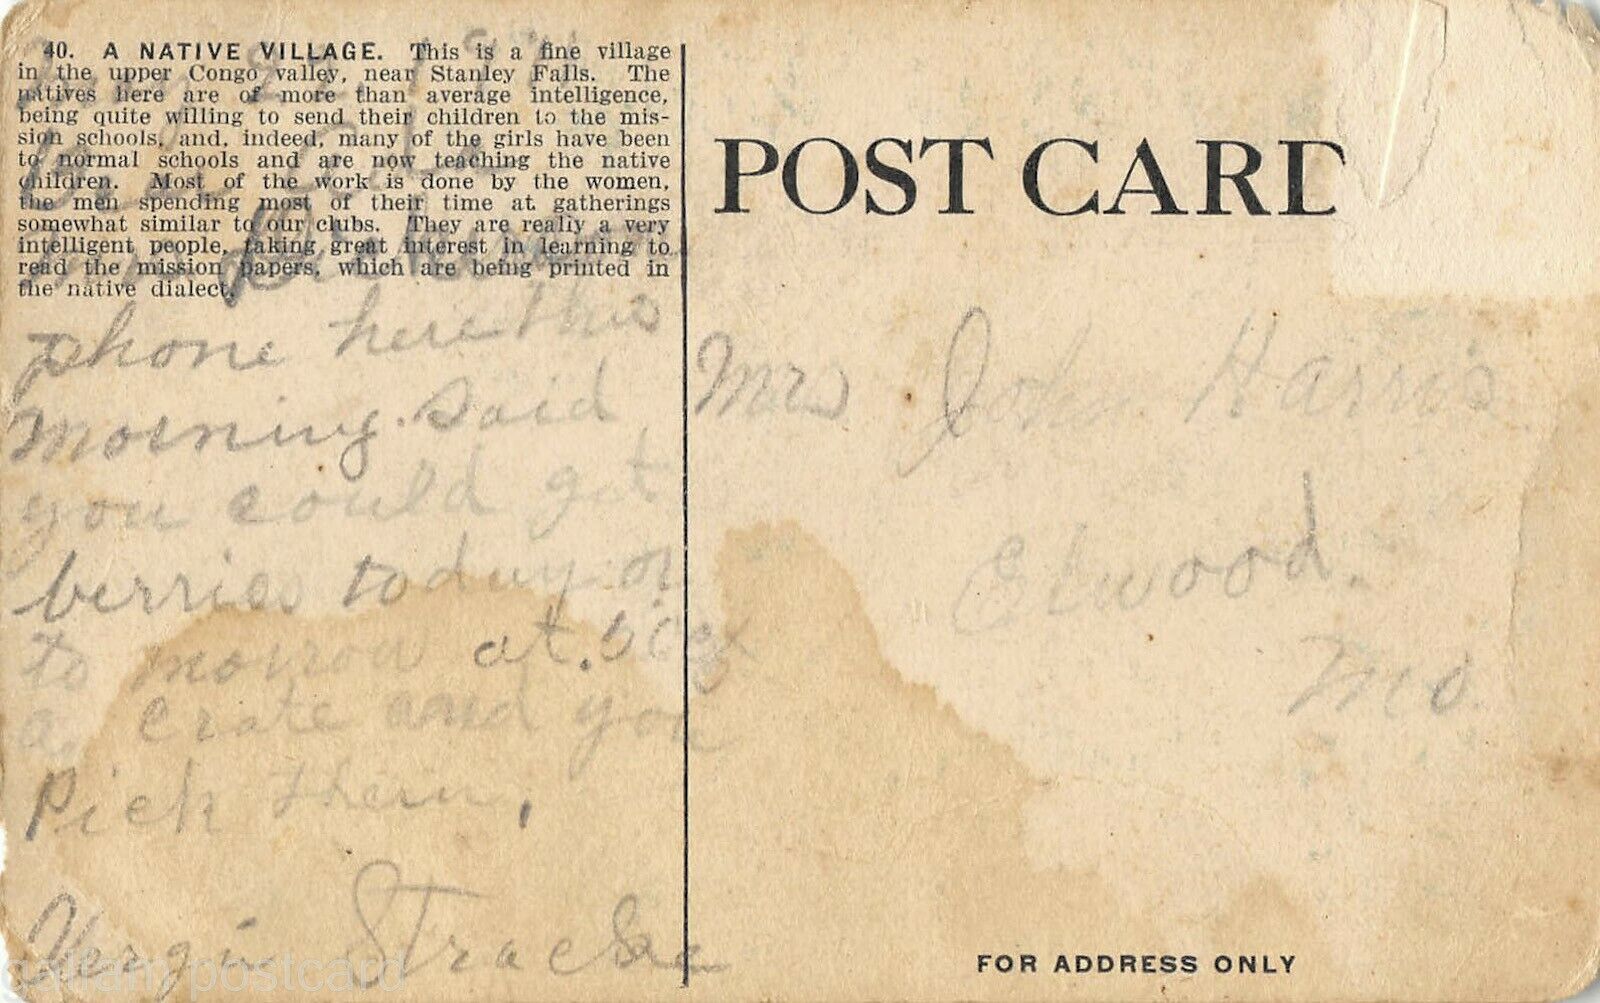 40. A NATIVE VILLAGE. This is a fine village
in the upper Congo valley, near Stanley Falls. The
natives here are of more than average intelligence,
being quite willing to send their children to the mis-
sion schools, and, indeed, many of the girls have been
to normal schools and are now teaching the native
children. Most of the work is done by the women,
the men spending most of their time at gatherings
somewhat similar to our clubs. They are really a very
intelligent people, taking great interest in learning to
read the mission papers, which are being printed in
the native dialect.
phone here this
morning. said
you could get
berries today or
to morrow at
a crate and you
Pick them.
POST CARD
Mrs John Harris
Elwood.
Mo.
FOR ADDRESS ONLY
gallam/postcard